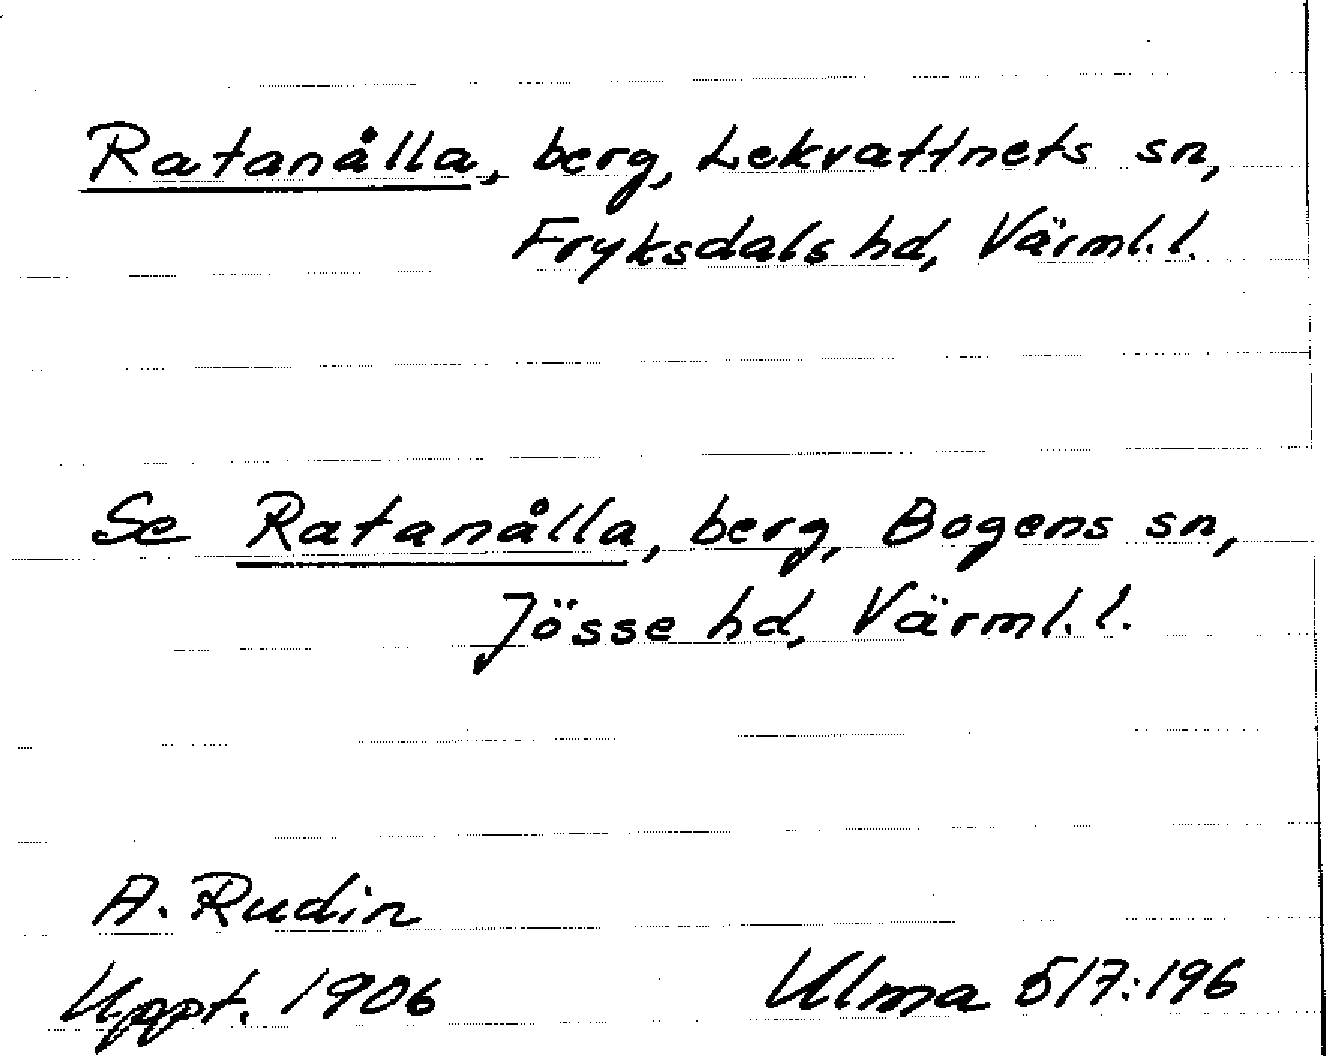 Ratanålla, berg, Lekvattnets sn,
Fryksdals hd, Värml. l.
Se Ratanålla, berg, Bogens sn,
Jösse hd, Värml. l.
A. Rudin
Uppt. 1906 Ulma 517:196